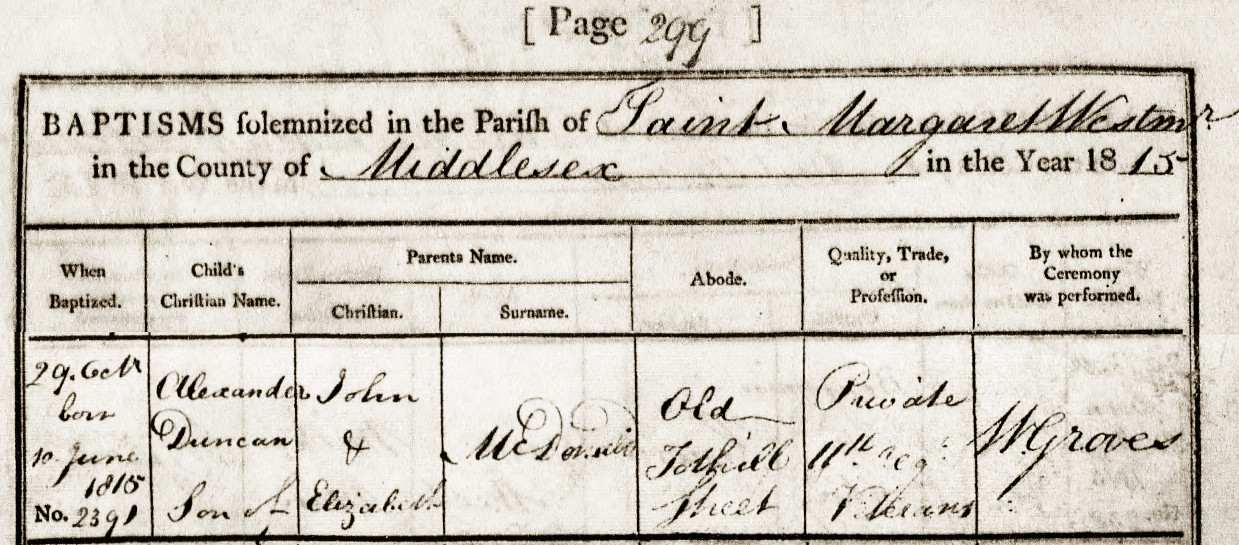 [ Page 299 ]
BAPTISMS solemnized in the Parish of Saint Margaret Westmr.
in the County of Middlesex in the Year 1815
When Baptized.
Child's Christian Name.
Parents Name.
Christian.
Surname.
Abode.
Quality, Trade, or Profession.
By whom the Ceremony was performed.
29. Octr
born
10. June
1815
No. 2391
Alexander
Duncan
Son of
John
&
Elizabeth
Old
Tothill
Street
Private
11th Regt
Veterans
W Groves